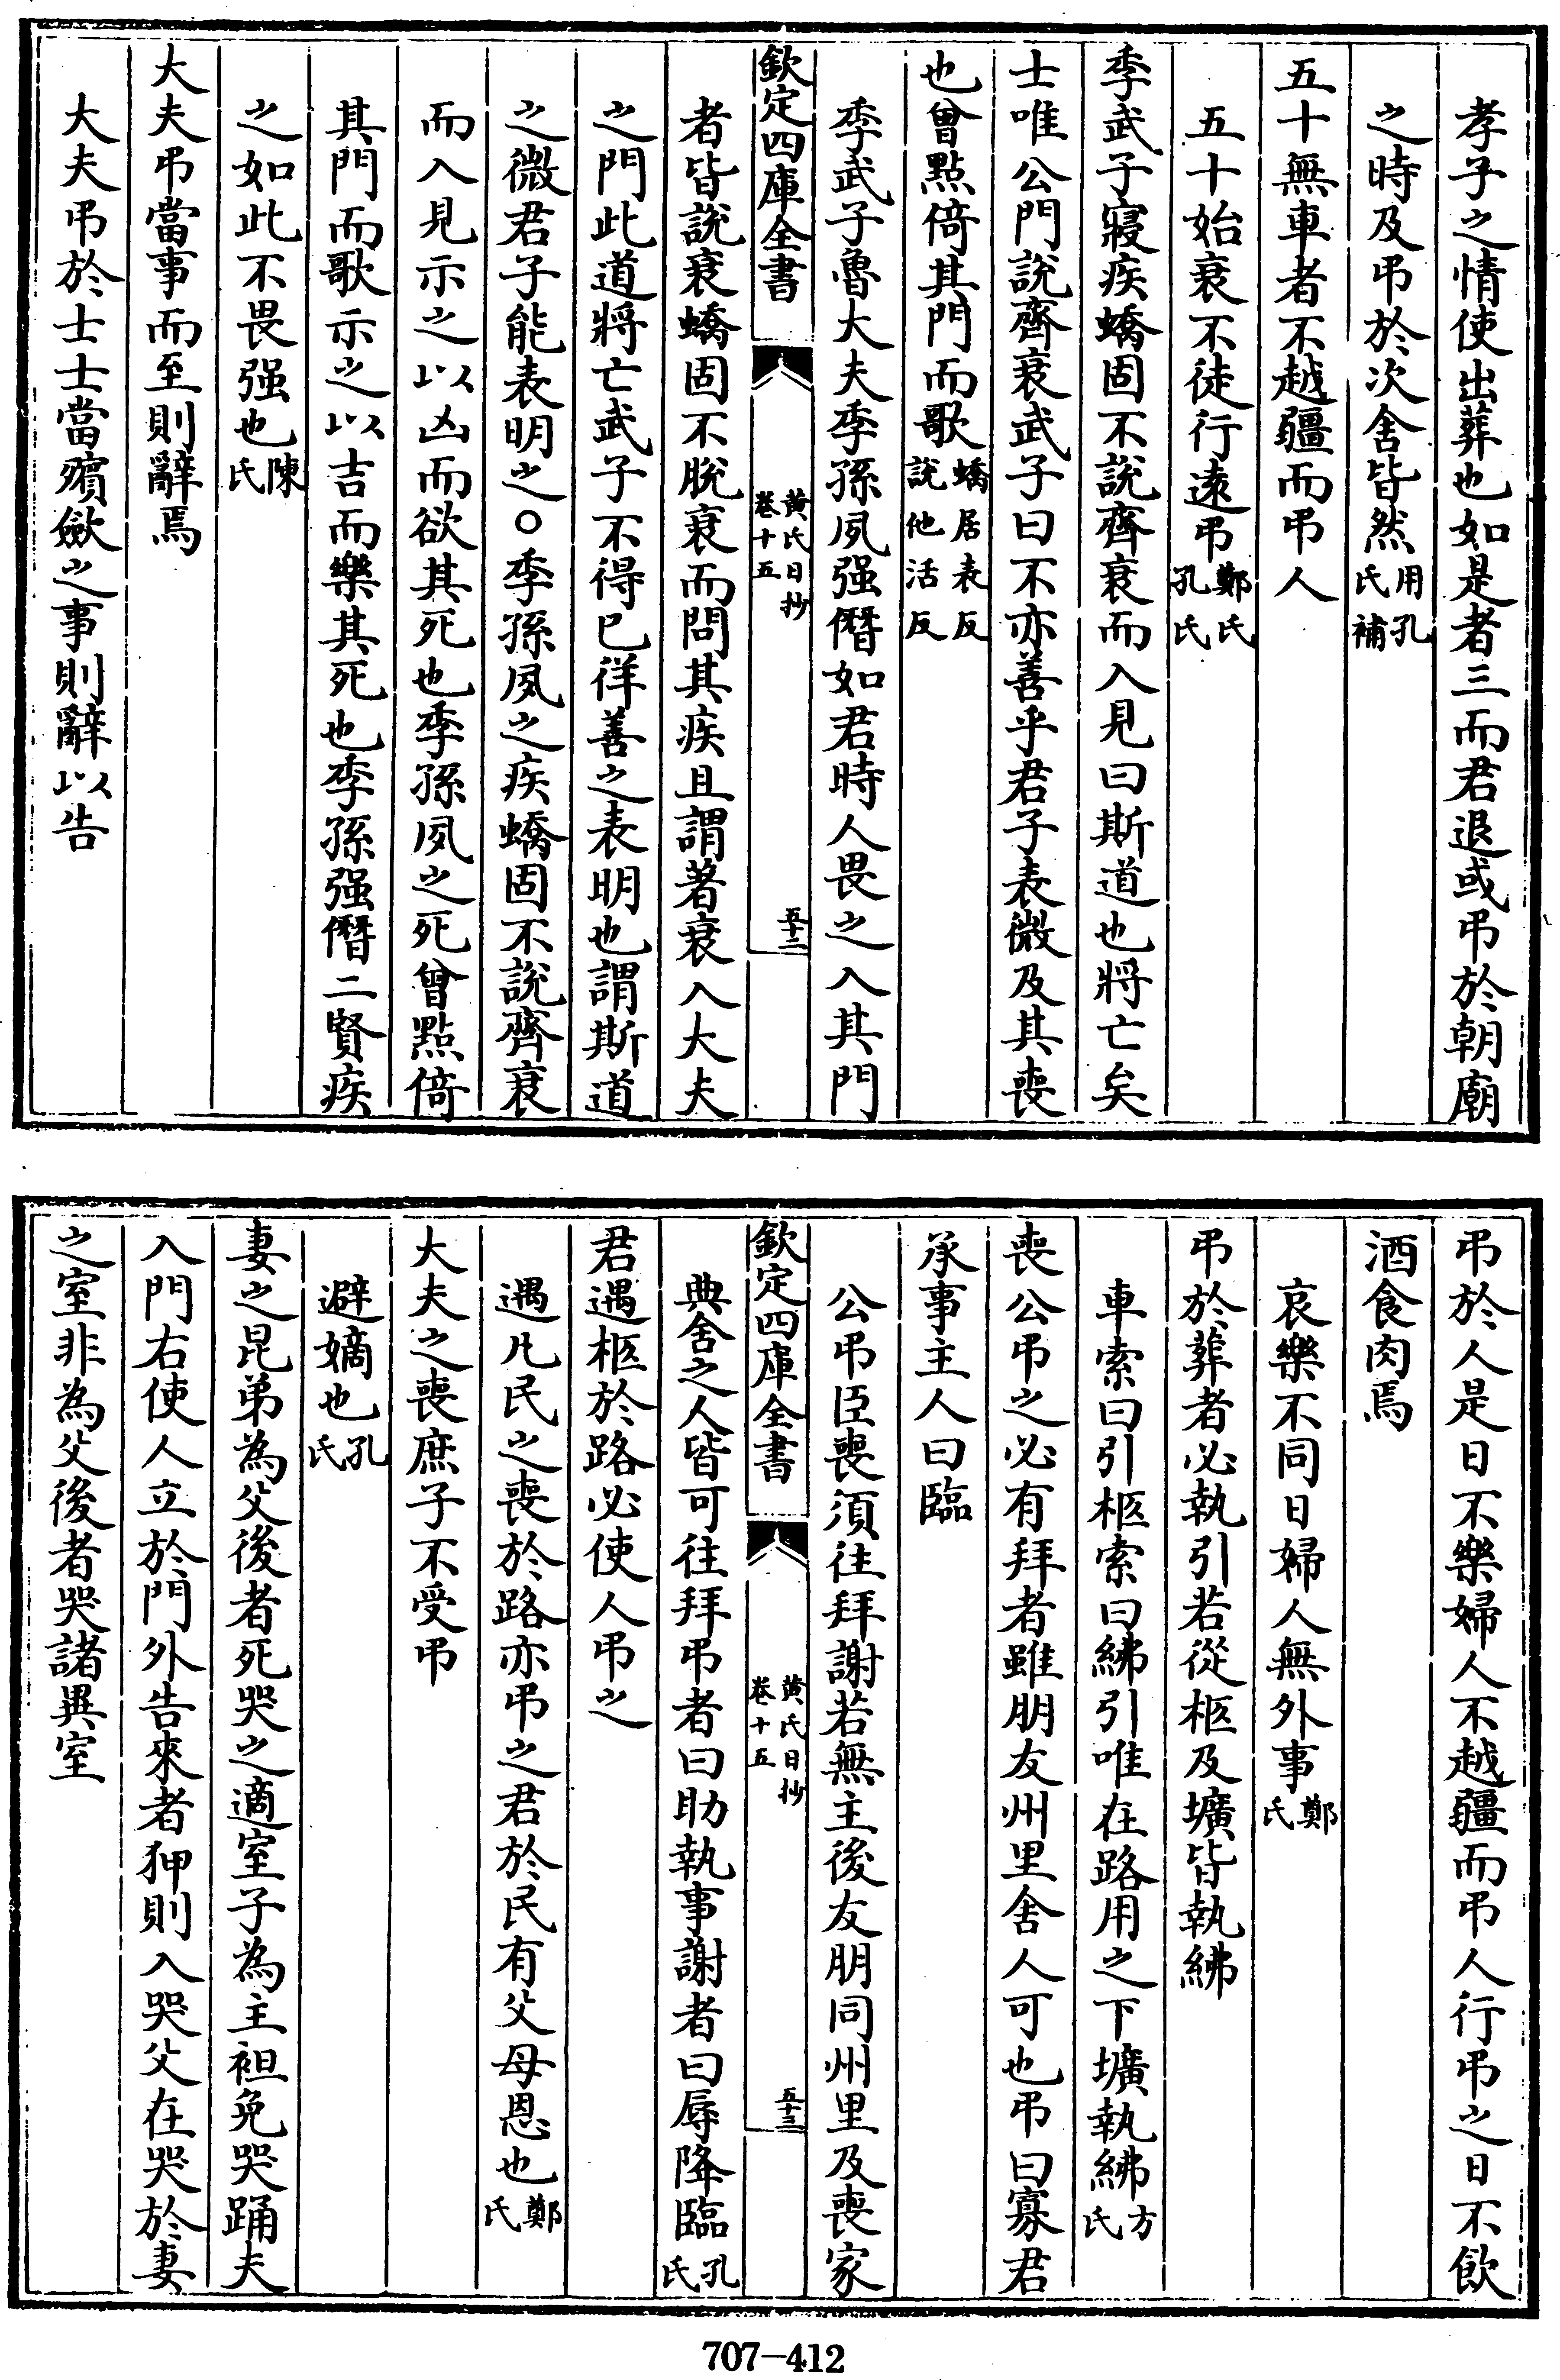 孝子之情使出葬也如是者三而君退或弔於朝廟
之時及弔於次舍皆然用孔氏補
五十無車者不越疆而弔人
五十始衰不徒行遠弔鄭氏孔氏
季武子寢疾蟜固不說齊衰而入見曰斯道也將亡矣
士唯公門說齊衰武子曰不亦善乎君子表微及其喪
也曾點倚其門而歌蟜居表反說他活反
季武子魯大夫季孫夙强僭如君時人畏之入其門
欽定四庫全書 黃氏日抄卷十五 五十二
者皆說衰蟜固不脫衰而問其疾且謂著衰入大夫
之門此道將亡武子不得已佯善之表明也謂斯道
之微君子能表明之○季孫夙之疾蟜固不說齊衰
而入見示之以凶而欲其死也季孫夙之死曾點倚
其門而歌示之以吉而樂其死也季孫强僭二賢疾
之如此不畏强也陳氏
大夫弔當事而至則辭焉
大夫弔於士士當殯斂之事則辭以告
弔於人是日不樂婦人不越疆而弔人行弔之日不飲
酒食肉焉
哀樂不同日婦人無外事鄭氏
弔於葬者必執引若從柩及壙皆執紼
車索曰引柩索曰紼引唯在路用之下壙執紼方氏
喪公弔之必有拜者雖朋友州里舍人可也弔曰寡君
承事主人曰臨
公弔臣喪須往拜謝若無主後友朋同州里及喪家
欽定四庫全書 黃氏日抄卷十五 五十三
典舍之人皆可往拜弔者曰助執事謝者曰辱降臨孔氏
君遇柩於路必使人弔之
遇凡民之喪於路亦弔之君於民有父母恩也鄭氏
大夫之喪庶子不受弔
避嫡也孔氏
妻之昆弟為父後者死哭之適室子為主袒免哭踊夫
入門右使人立於門外告來者狎則入哭父在哭於妻
之室非為父後者哭諸異室
707-412